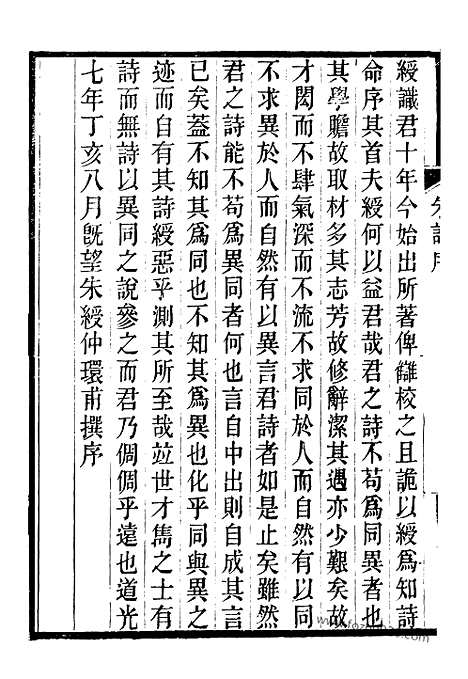 朱詩序
綬讖君十年今始出所著俾讎校之且詭以綬爲知詩
命序其首夫綬何以益君哉君之詩不苟爲同異者也
其學贍故取材多其志芳故修辭潔其遇亦少艱矣故
才閎而不肆氣深而不流不求同於人而自然有以同
不求異於人而自然有以異言君詩者如是止矣雖然
君之詩能不苟爲異同者何也言自中出則自成其言
已矣蓋不知其爲同也不知其爲異也化乎同與異之
迹而自有其詩綬惡乎測其所至哉竝世才雋之士有
詩而無詩以異同之說參之而君乃倜倜乎遠也道光
七年丁亥八月旣望朱綬仲環甫撰序